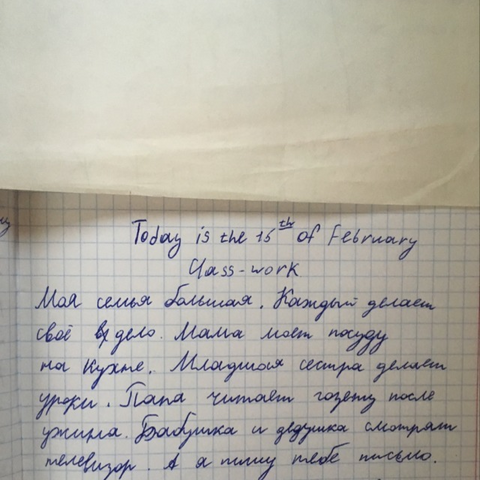 Today is the 15th of February
Class-work
Моя семья большая. Каждый делает
своё дело. Мама моет посуду
на кухне. Младшая сестра делает
уроки. Папа читает газету после
ужина. Бабушка и дедушка смотрят
телевизор. А я пишу тебе письмо.